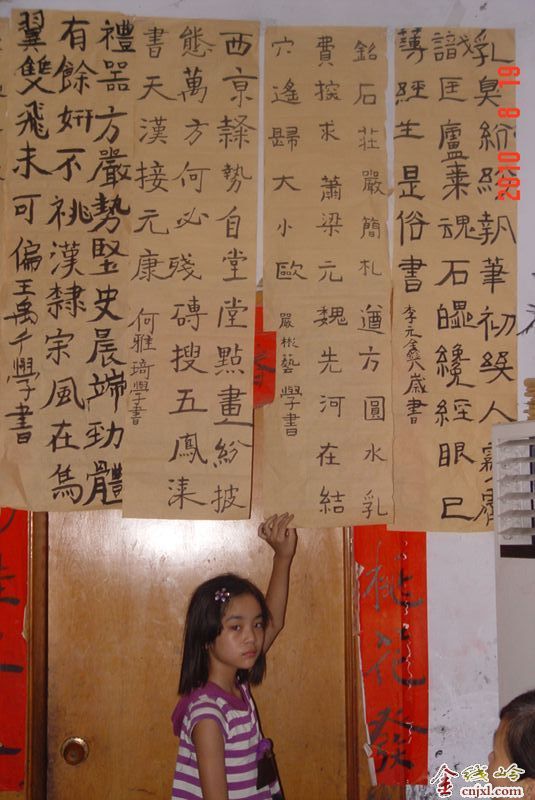 乳臭紛紛執筆初幾人霧霽
識匡廬棗魂石魄纔經眼已
薄經生是俗書 李元鑫八歲書
銘石莊嚴簡札遒方圓水乳
費探求蕭梁元魏先河在結
穴遙歸大小歐 嚴彬藝學書
西京隸勢自堂堂點畫紛披
態萬方何必殘磚搜五鳳漆
書天漢接元康 何雅琦學書
禮器方嚴勢堅史晨端勁體
有餘妍不祧漢隸宗風在鳥
翼雙飛未可偏 王禹千學書
桃花發
2010 8 19
金线岭
cnjxl.com